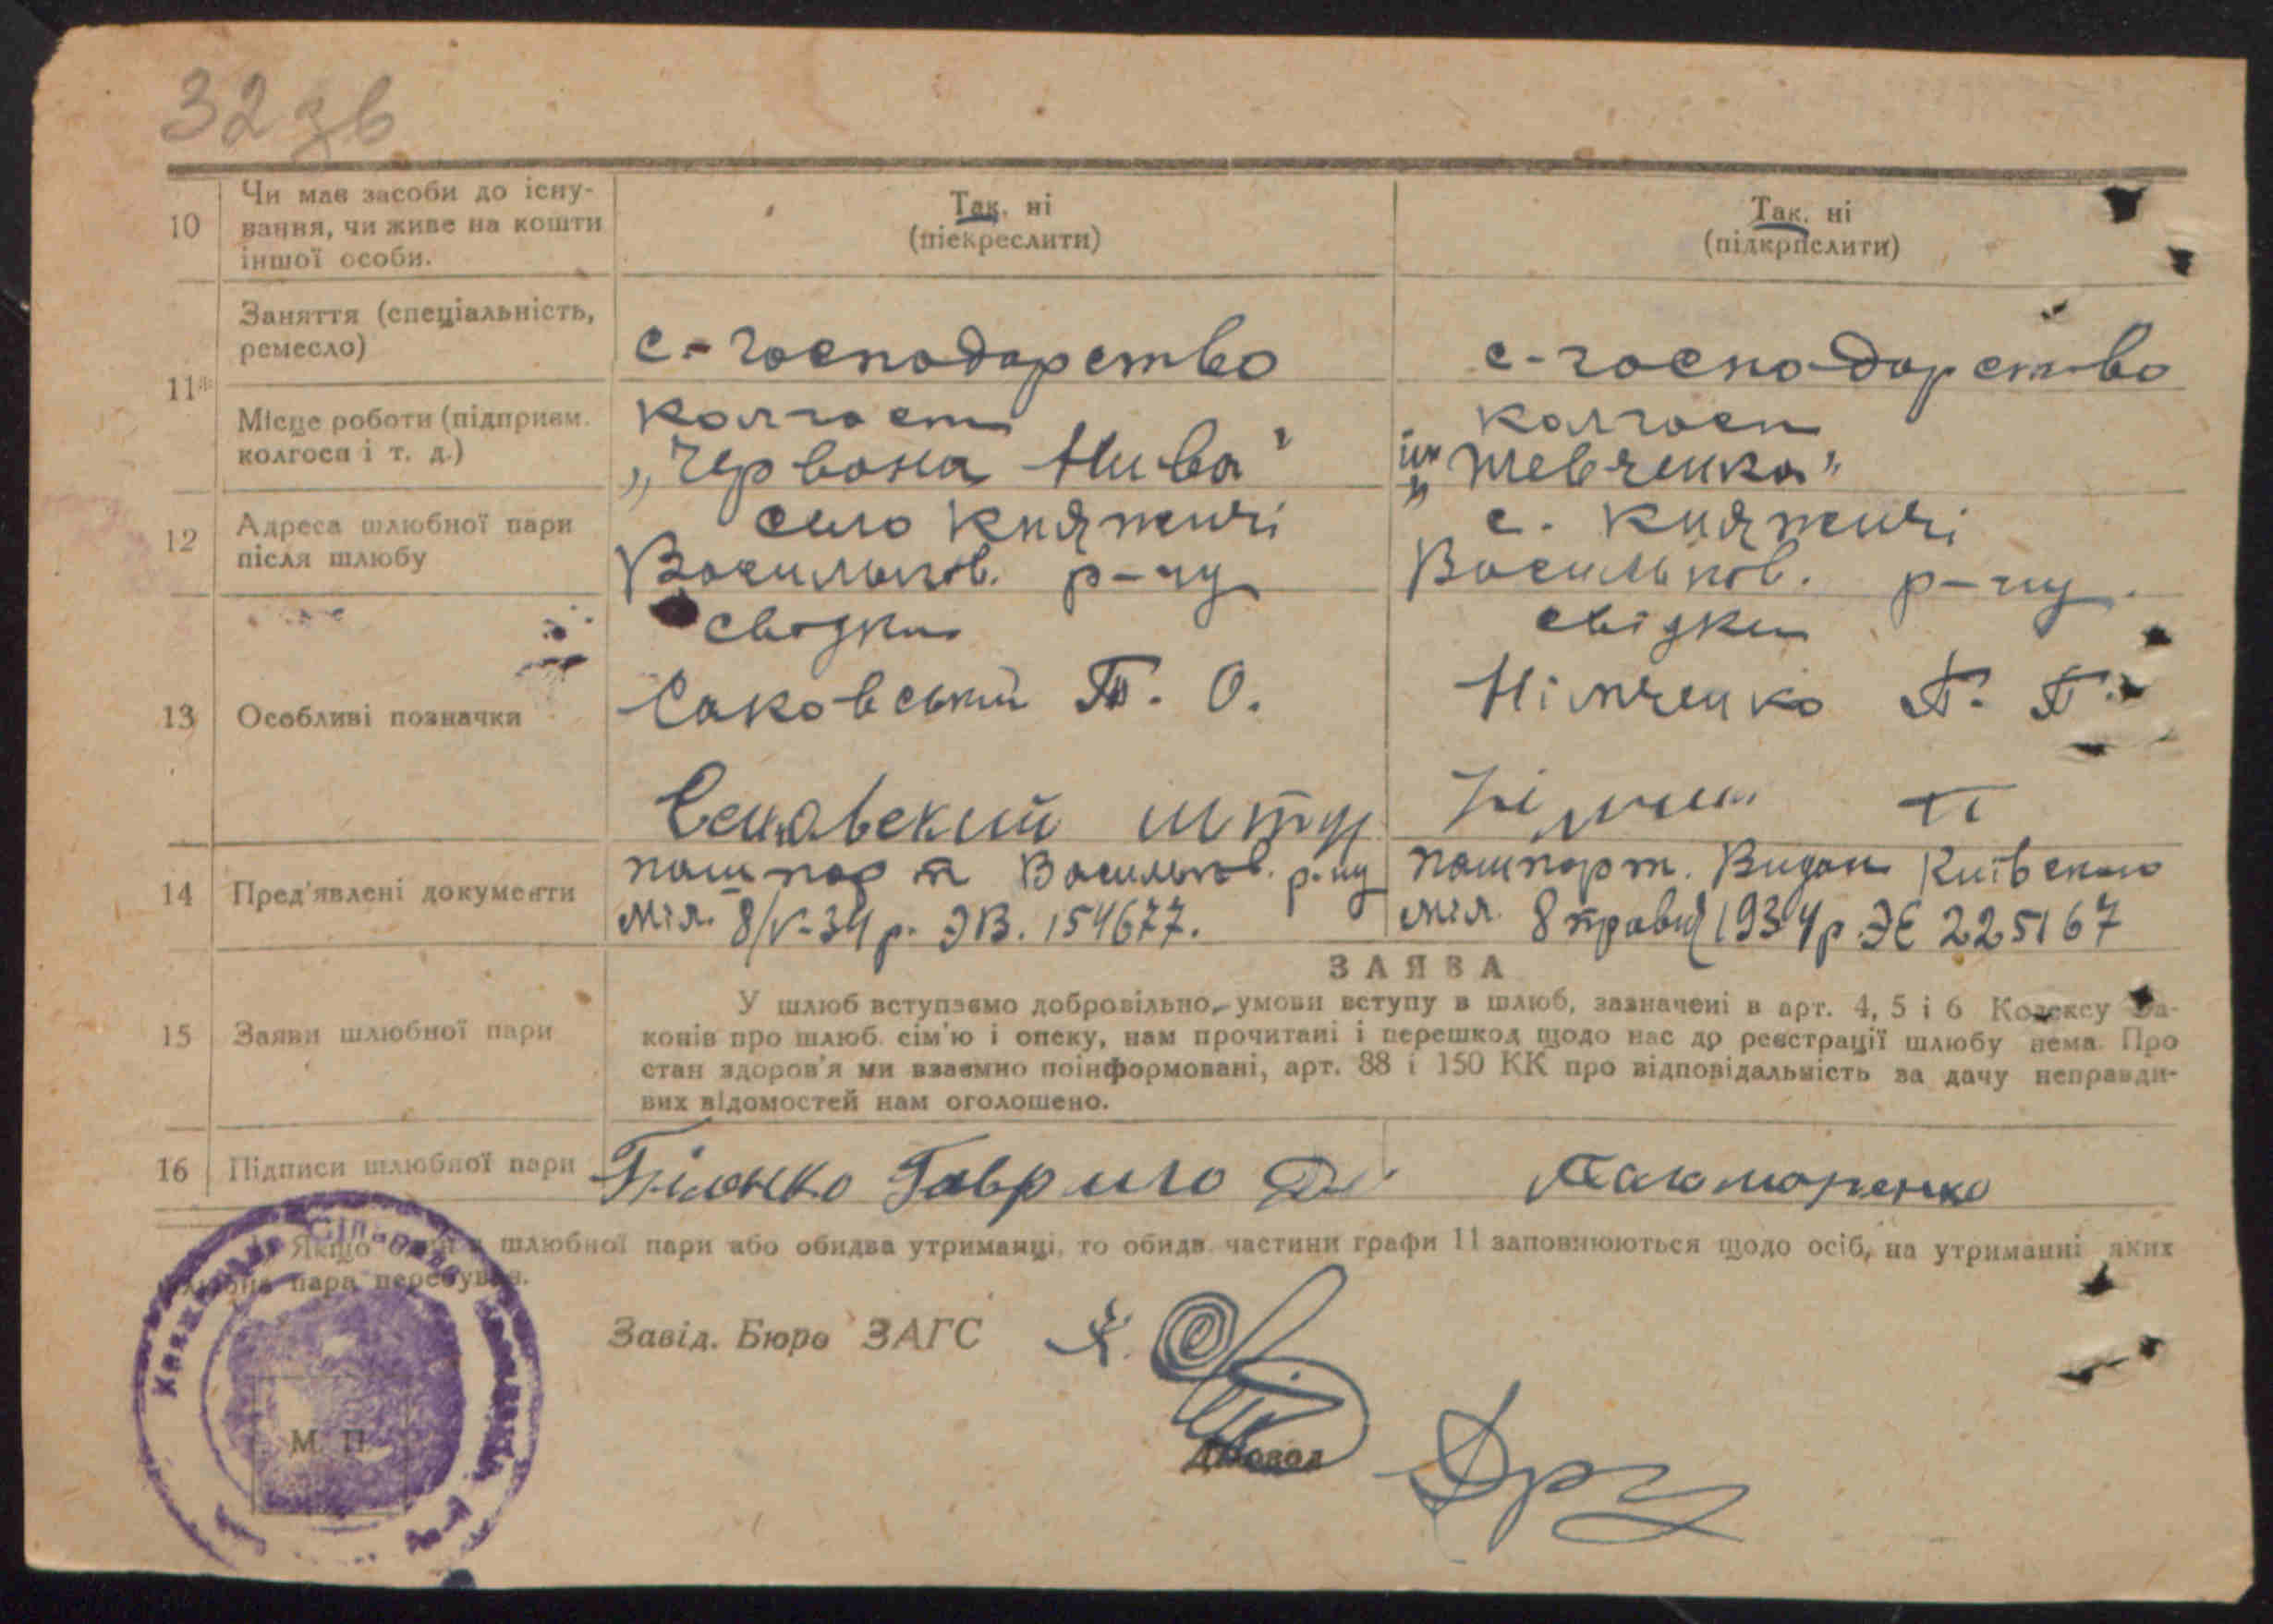 32 зв
10 Чи має засоби до існу-
вання, чи живе на кошти
іншої особи.
Так, ні
(піекреслити)
Так, ні
(підкрпслити)
11* Заняття (спеціальність,
ремесло)
с.-господарство
с-господарство
Місце роботи (підприєм.
колгосп і т. д.)
колгосп
„Червона Нива"
колгосп
ім „Шевченка"
12 Адреса шлюбної пари
після шлюбу
село Княжичі
Васильків. р-ну
с. Княжичі
Васильків. р-ну.
13 Особливі позначки
свідки
Саковський Т. О.
свідки
Німченко П. П.
14 Пред'явлені документи
пашпорт Васильків. р-ну
міл. 8/V-34 р. ЭВ. 154677.
пашпорт. Видан Київською
міл. 8 травня 1934 р. ЭЄ 225167
15 Заяви шлюбної пари
ЗАЯВА
У шлюб вступаємо добровільно, умови вступу в шлюб, зазначені в арт. 4, 5 і 6 Кодексу За-
конів про шлюб. сім'ю і опеку, нам прочитані і перешкод щодо нас до реєстрації шлюбу нема. Про
стан здоров'я ми взаємно поінформовані, арт. 88 і 150 КК про відповідальність за дачу неправди-
вих відомостей нам оголошено.
16 Підписи шлюбної пари
Гаврило
Якщо шлюбної пари або обидва утриманці, то обидв. частини графи 11 заповнюються щодо осіб, на утриманні яких
пара перебуває.
Завід. Бюро ЗАГС
М. П.